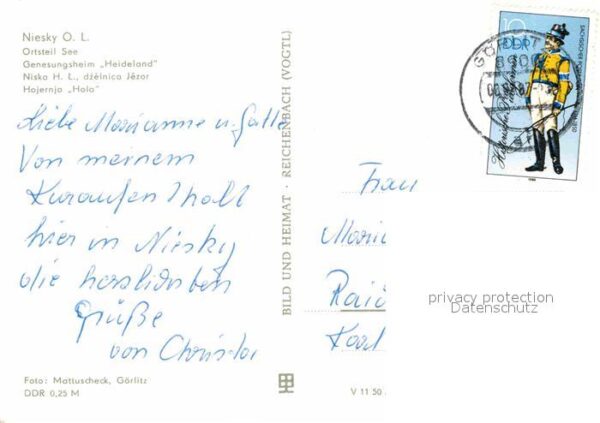 Niesky O. L.
Ortsteil See
Genesungsheim „Heideland"
Niska H. Ł., dźělnica Jězor
Hojernja „Hola"
Liebe Marianne u.
Von meinem
Kuraufenthalt
hier in Niesky
die herzlichsten
Grüße
von Christa
Foto: Mattuscheck, Görlitz
DDR 0,25 M
BILD UND HEIMAT · REICHENBACH (VOGTL)
V 11 50
Frau
10
DDR
GÖRLITZ
8900
1986
privacy protection
Datenschutz